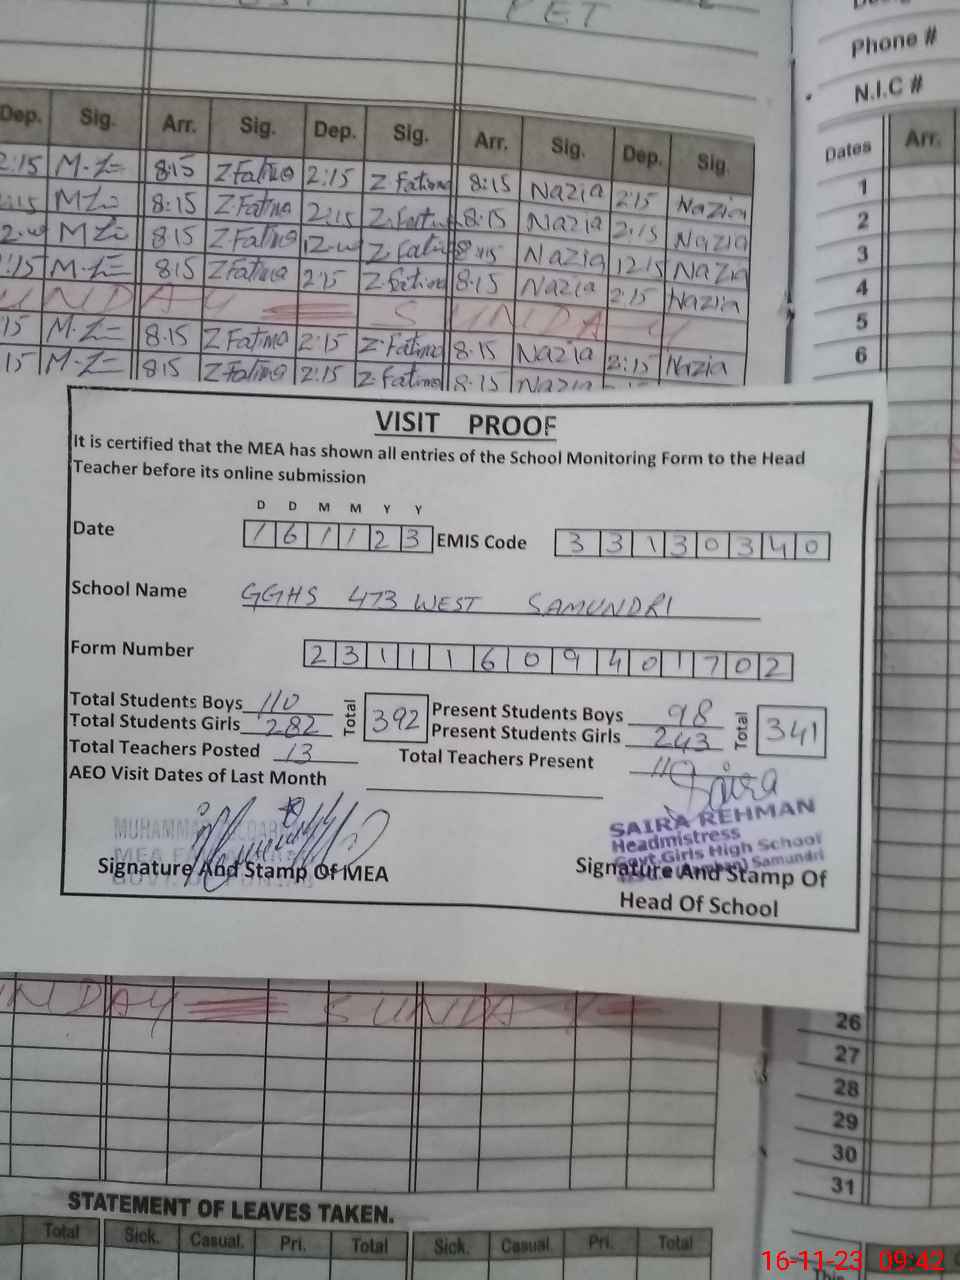 PET
Phone #
N.I.C #
Dep. Sig. Arr. Sig. Dep. Sig. Arr. Sig. Dep. Sig. Dates Arr.
2:15 8:15 Z Fatima 2:15 Z Fatima 8:15 Nazia 2:15 Nazia 1
2:15 8:15 Z Fatima 2:15 Z Fatima 8:15 Nazia 2:15 Nazia 2
8:15 Z Fatima Z Fatima 8:15 Nazia 12:15 Nazia 3
2:15 8:15 Z Fatima 2:15 Z Fatima 8:15 Nazia 2:15 Nazia 4
UNDAY SUNDAY 5
15 8:15 Z Fatima 2:15 Z Fatima 8:15 Nazia 2:15 Nazia 6
15 8:15 Z Fatima 2:15 Z Fatima 8:15 Nazia
VISIT PROOF
It is certified that the MEA has shown all entries of the School Monitoring Form to the Head
Teacher before its online submission
D D M M Y Y
Date 161123 EMIS Code 33130340
School Name GGHS 473 WEST SAMUNDRI
Form Number 23111609401702
Total Students Boys 110 Total 392 Present Students Boys 98 Total 341
Total Students Girls 282 Present Students Girls 243
Total Teachers Posted 13 Total Teachers Present 11
AEO Visit Dates of Last Month
Saira
MUHAMMAD
MEA
GOVT. OF PUNJAB
SAIRA REHMAN
Headmistress
Govt. Girls High School
Samundri
Signature And Stamp Of MEA Signature And Stamp Of
Head Of School
UNDAY SUNDAY
26
27
28
29
30
31
STATEMENT OF LEAVES TAKEN.
Total Sick. Casual. Pri. Total Sick. Casual. Pri. Total
16-11-23 09:42